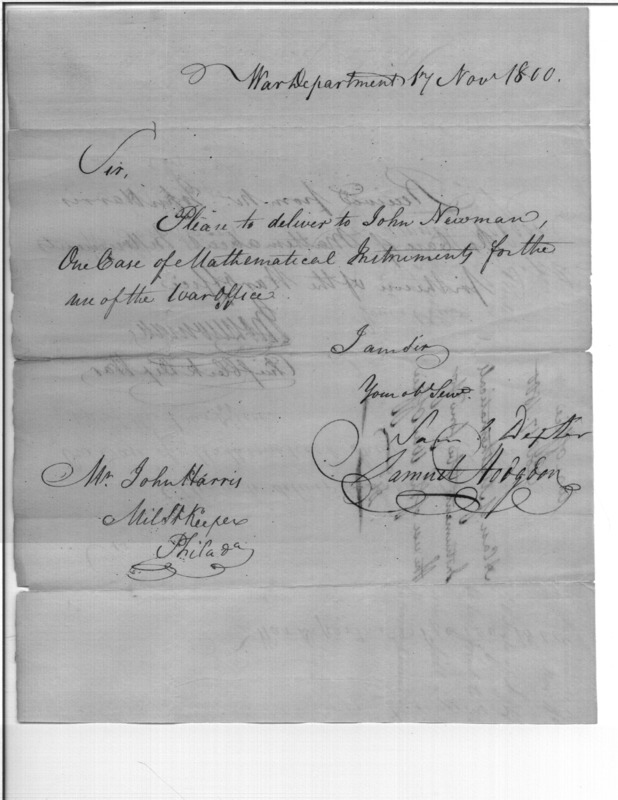 War Department 17 Novr 1800.
Sir,
Please to deliver to John Newman,
One Case of Mathematical Instruments for the
use of the War Office.
I am Sir
Your obt Servt
Saml Dexter
Samuel Hodgdon
Mr. John Harris
Mil St Keeper
Philada